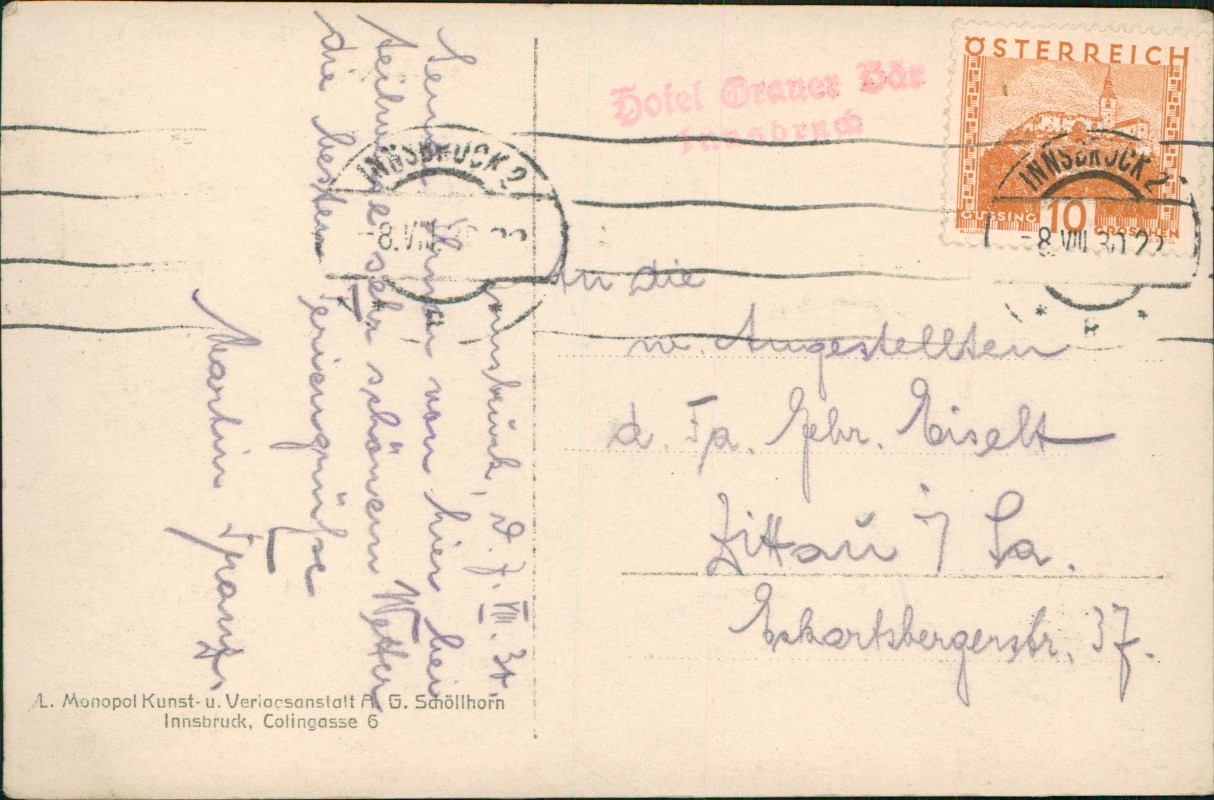 Innsbruck, d. 7. VIII. 30.
Sende Ihnen von hier bei
teilweise sehr schönem Wetter
die besten Feriengrüße
Martin Franz.
Hotel Grauer Bär
Innsbruck
ÖSTERREICH
GÜSSING 10 GROSCHEN
INNSBRUCK 2
-8.VIII.30 22
INNSBRUCK 2
-8.VIII.30 22
An die
w. Angestellten
d. Fa. Gebr. Eiselt
Zittau i/ Sa.
Eckartsbergerstr. 37.
L. Monopol Kunst- u. Verlagsanstalt A. G. Schöllhorn
Innsbruck, Colingasse 6